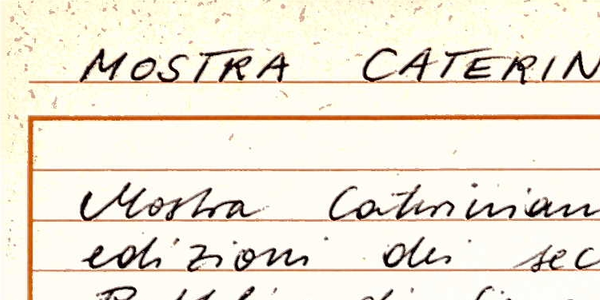 MOSTRA CATERIN
Mostra Caterinian
edizioni dei sec